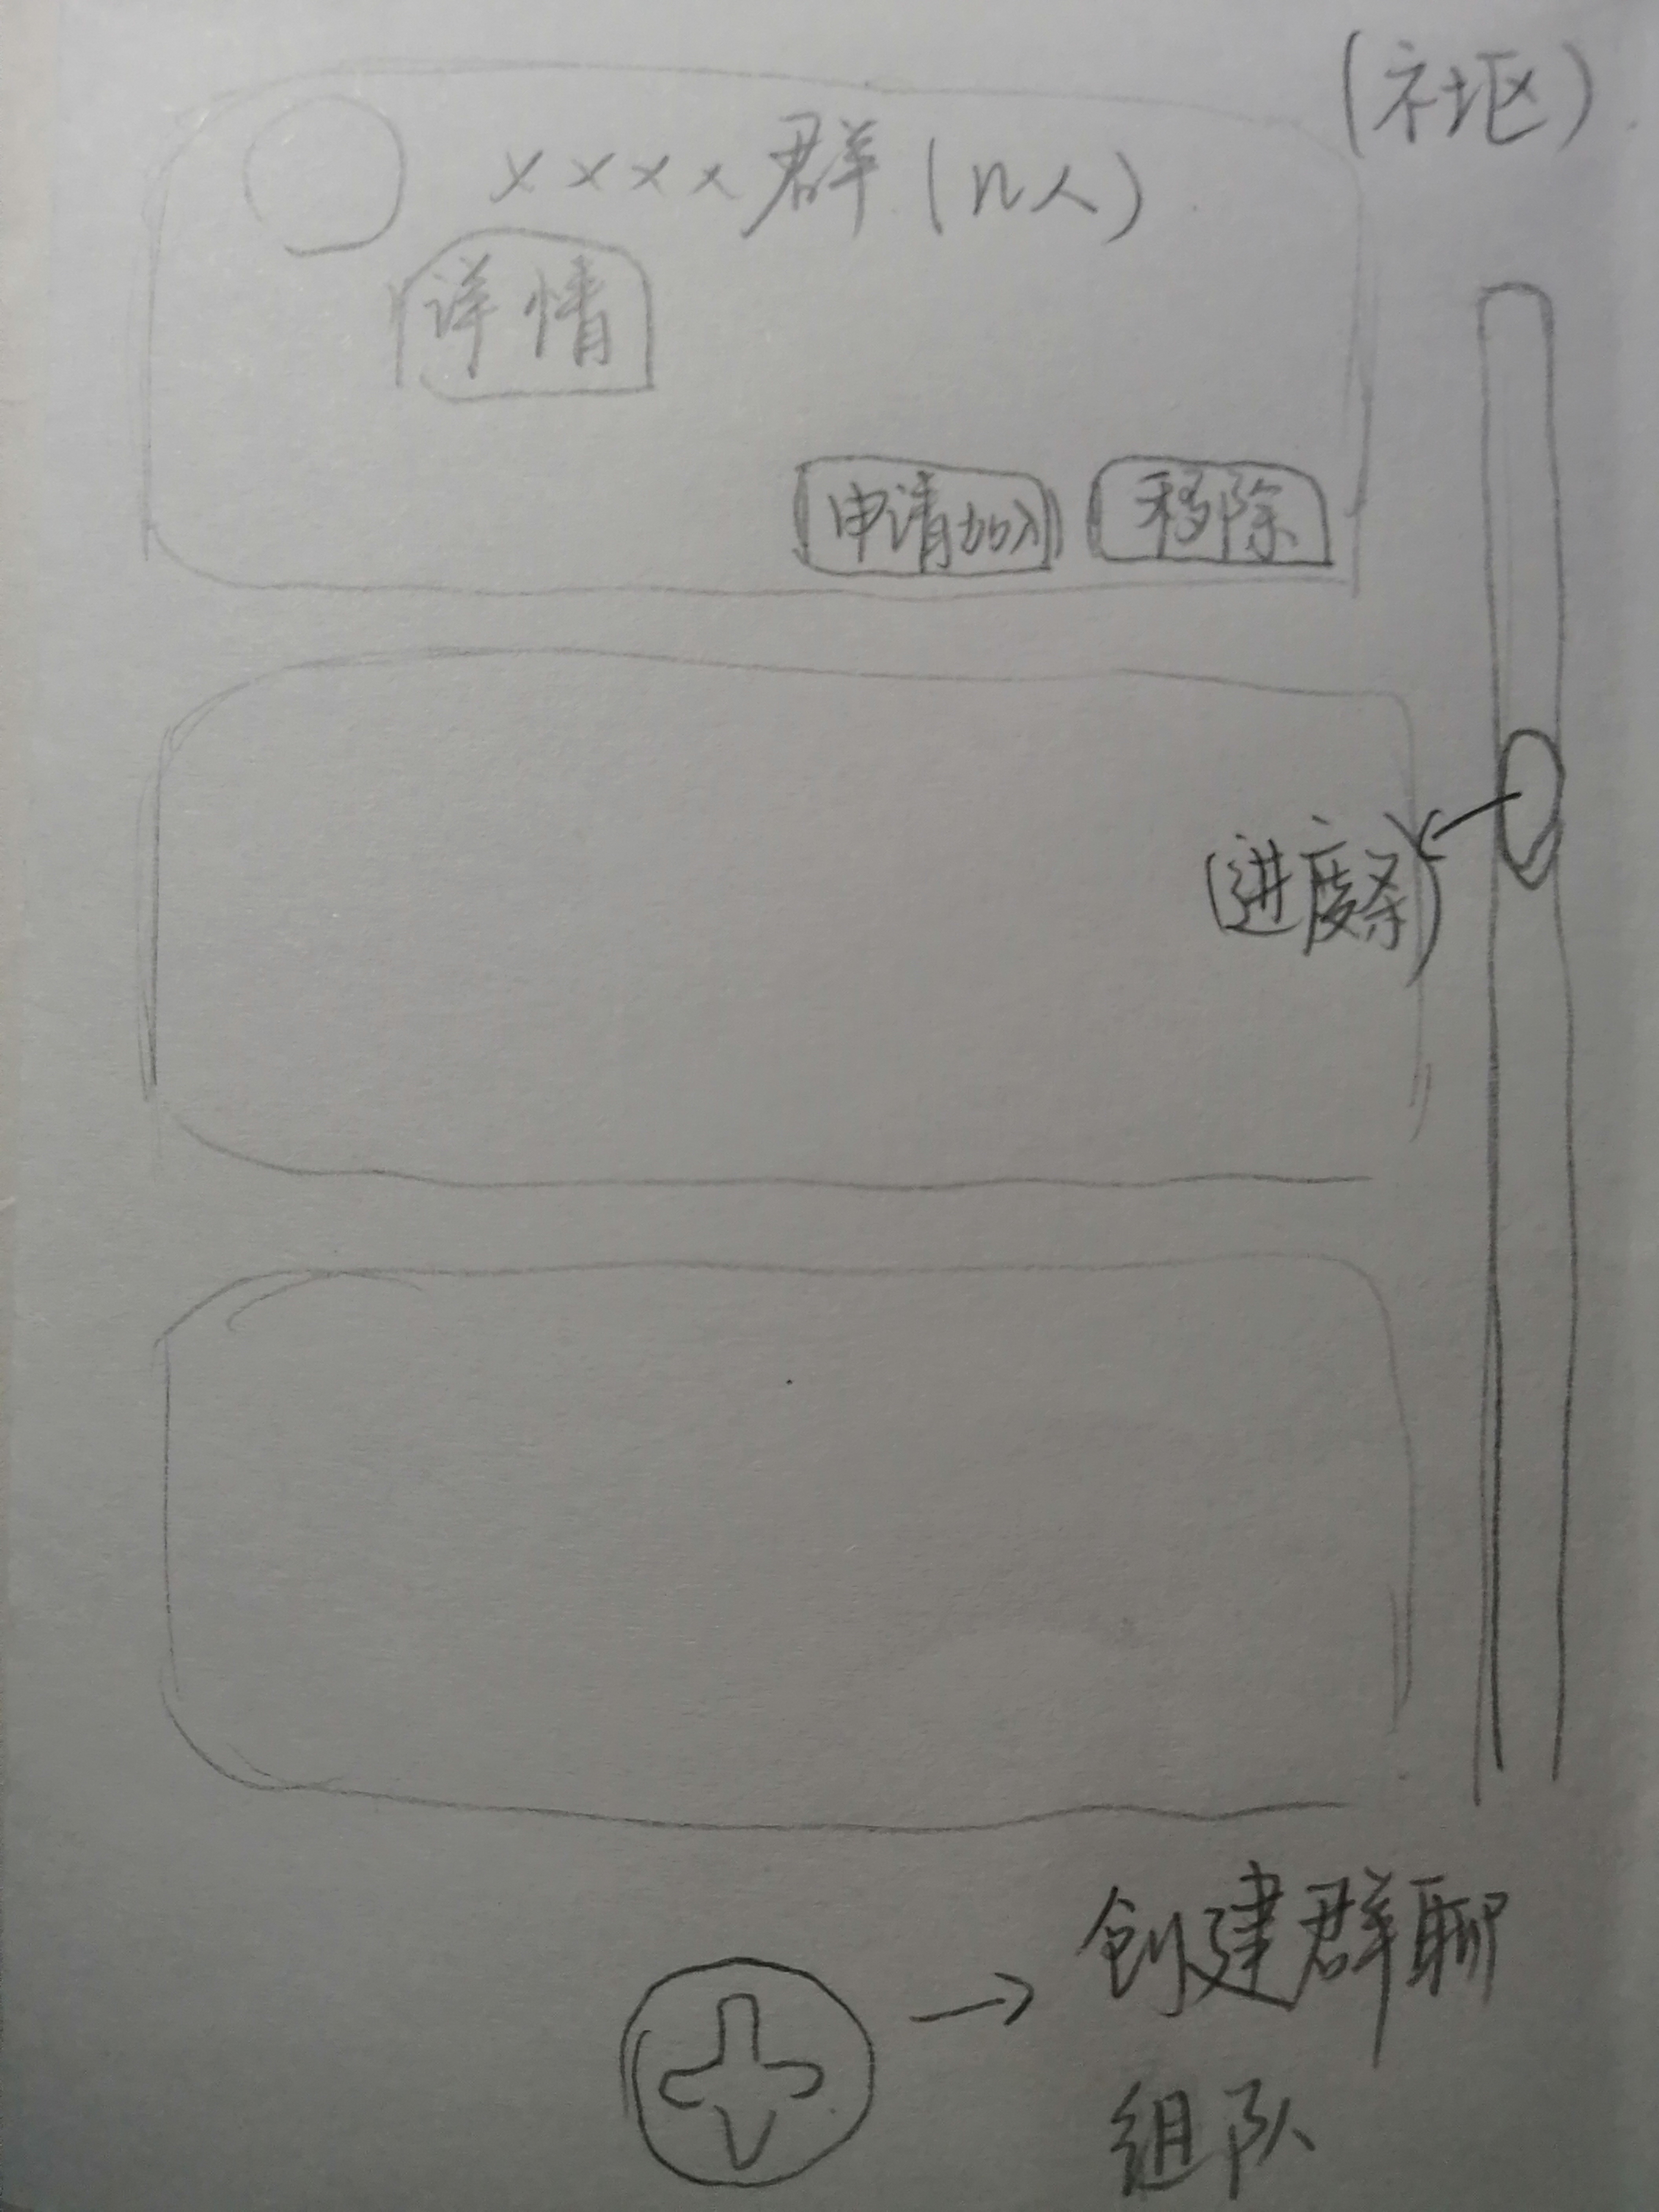 (社区)
××××群(几人)
详情
申请加入
移除
(进度条)
创建群聊
组队